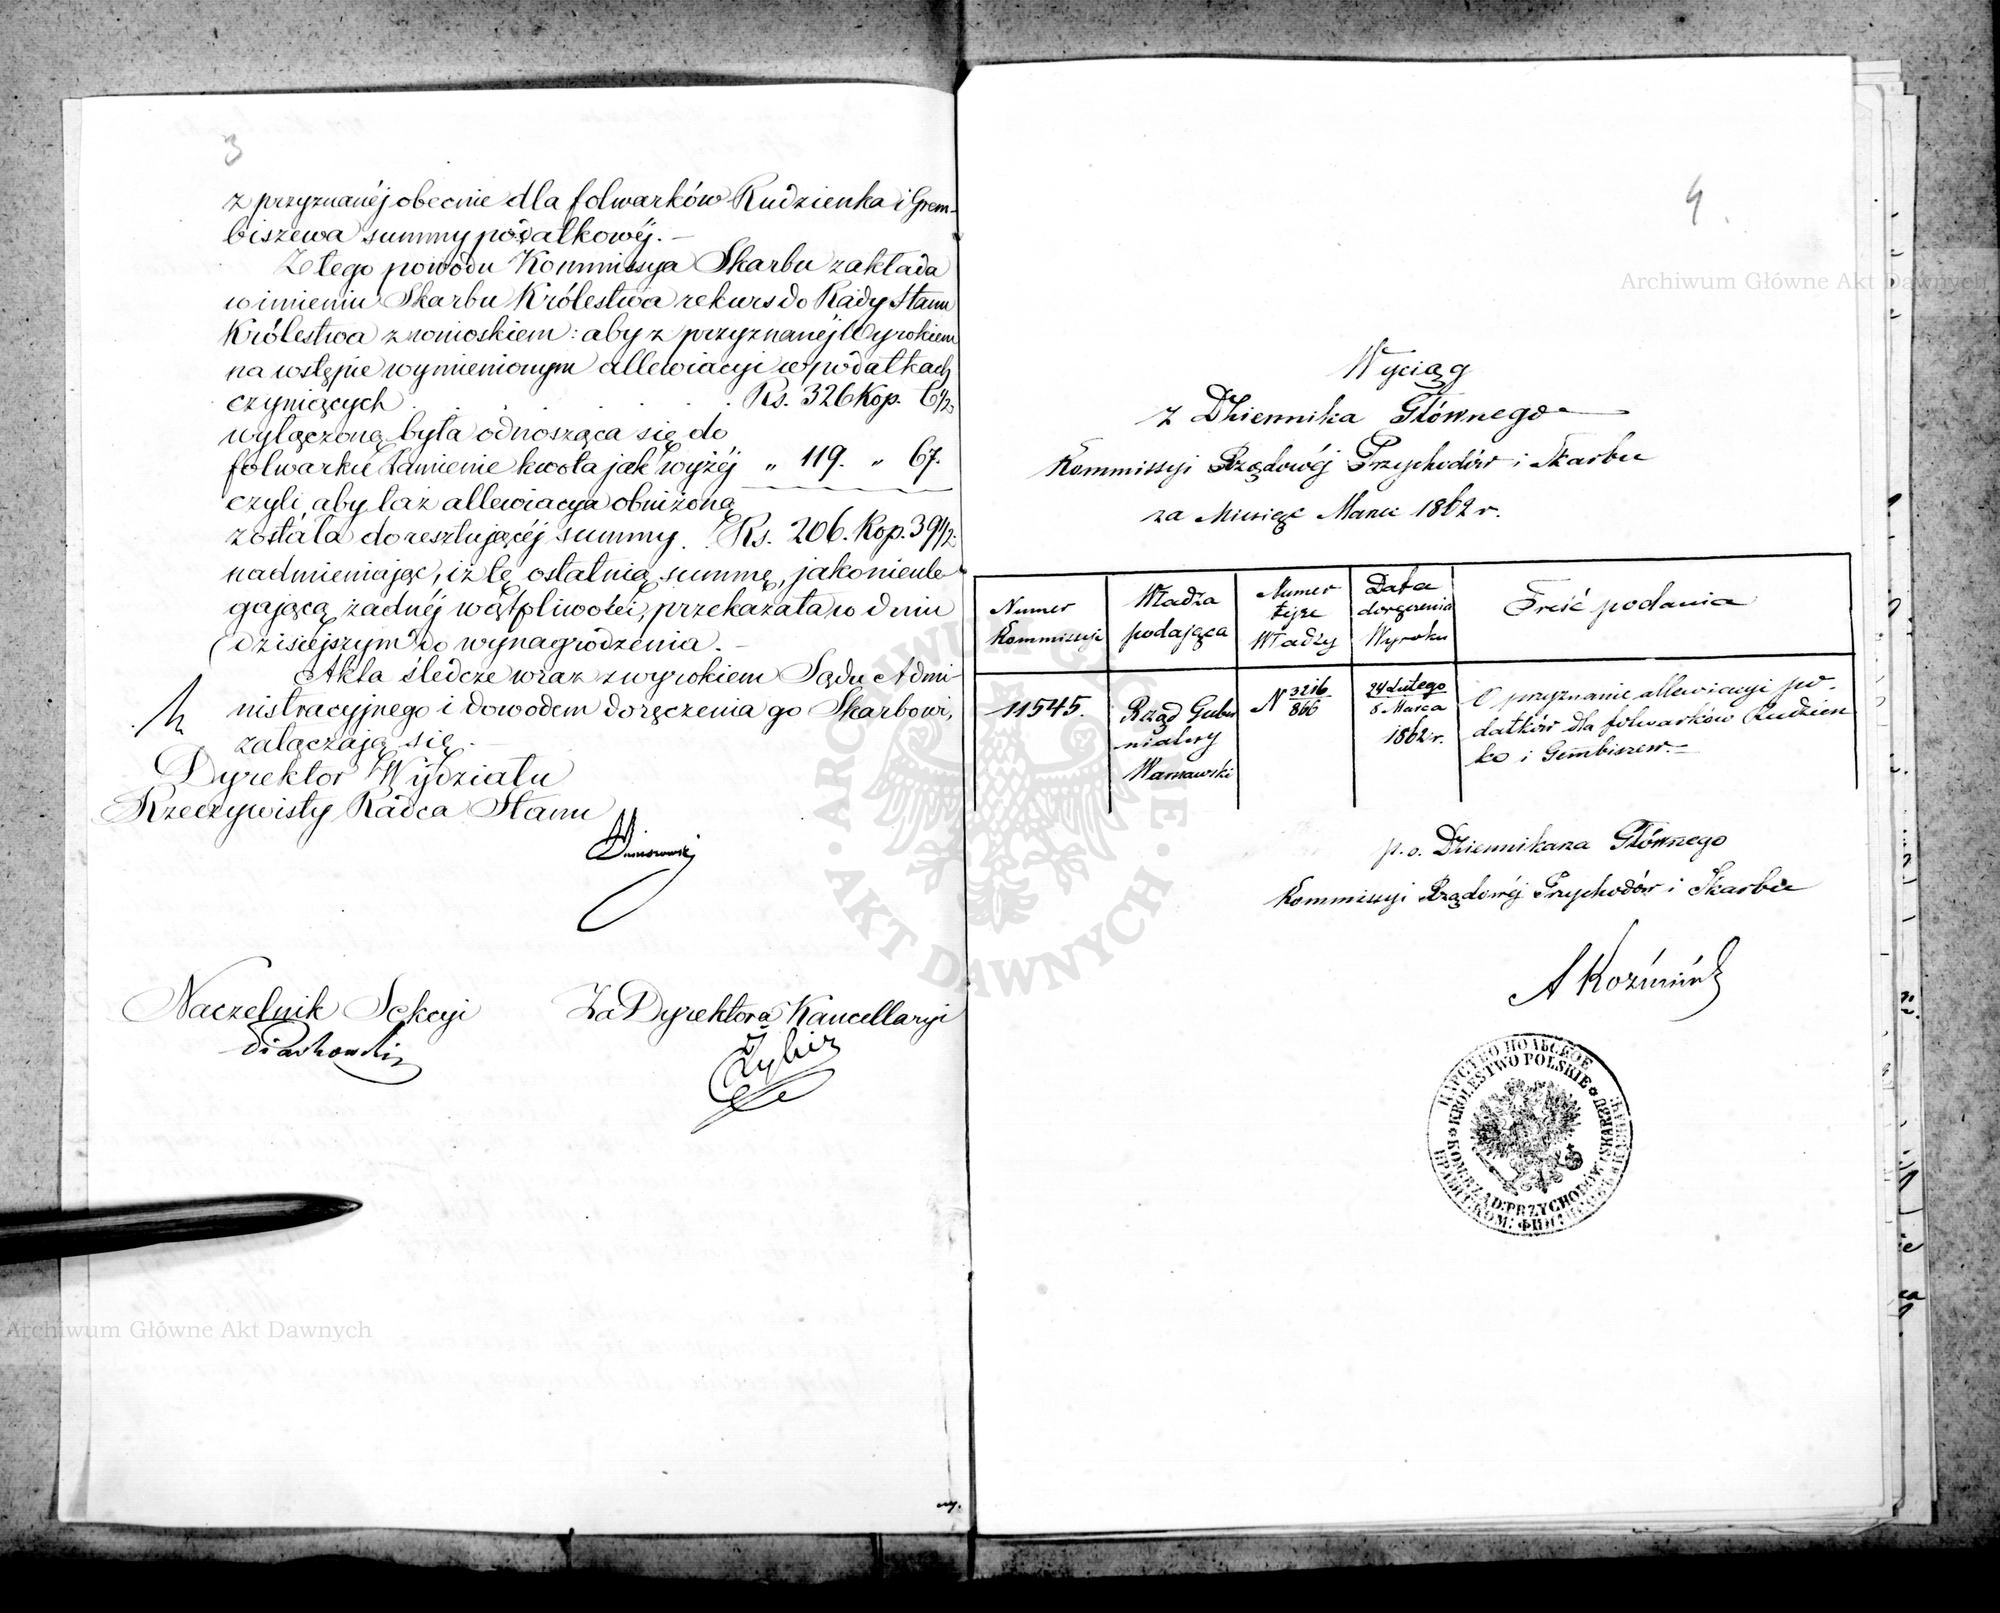 3
z przyznanéj obecnie dla folwarków Rudzienka i Grem-
biszewa summy podatkowéj. —
Z tego powodu Kommissya Skarbu zakłada
w imieniu Skarbu Królestwa rekurs do Rady Stanu
Królestwa z wnioskiem: aby z przyznanéj Wyrokiem
na wstępie wymienionym allewiacyi w podatkach
czyniących . . . . . Rs. 326 Kop. 6½
wyłączoną była odnosząca się do
folwarku Łamienie kwota jak wyżéj „ 119. „ 67.
czyli, aby taż allewiacya obniżoną
została do resztującéj summy . . Rs. 206. Kop. 39½.
nadmieniając, iż tę ostatnią summę, jako nieule-
gającą żadnéj wątpliwości, przekazała w dniu
dzisiejszym do wynagrodzenia. —
Akta śledcze wraz z wyrokiem Sądu Admi-
nistracyjnego i dowodem doręczenia go Skarbowi,
załączają się. —
Dyrektor Wydziału
Rzeczywisty Radca Stanu
Naczelnik Sekcyi
Za Dyrektora Kancellaryi
4.
Wyciąg
z Dziennika Głównego
Kommissyi Rządowéj Przychodów i Skarbu
za Miesiąc Marzec 1862 r.
Numer Kommissyi
Władza podająca
Numer tejże Władzy
Data doręczenia Wyroku
Treść podania
11545.
Rząd Guber
nialny
Warszawski
N 3216/866
24 Lutego/8 Marca
1862 r.
O przyznanie allewiacyi po-
datków dla folwarków Rudzien
ko i Gembiszew. —
p. o. Dziennikarza Głównego
Kommissyi Rządowéj Przychodów i Skarbu
A Koźmiński
ЦАРСТВО ПОЛЬСКОЕ
ПРАВИТ. КОМ. ФИН
KRÓLESTWO POLSKIE
KOM: RZĄD: PRZYCHODÓW I SKARBU
Archiwum Główne Akt Dawnych
Archiwum Główne Akt Dawnych
ARCHIWUM GŁÓWNE
AKT DAWNYCH